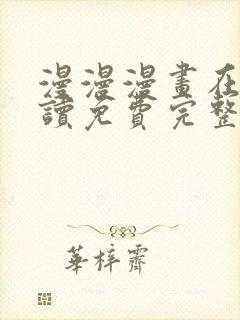 漫漫漫畫在
讀免費完整
華梓霽